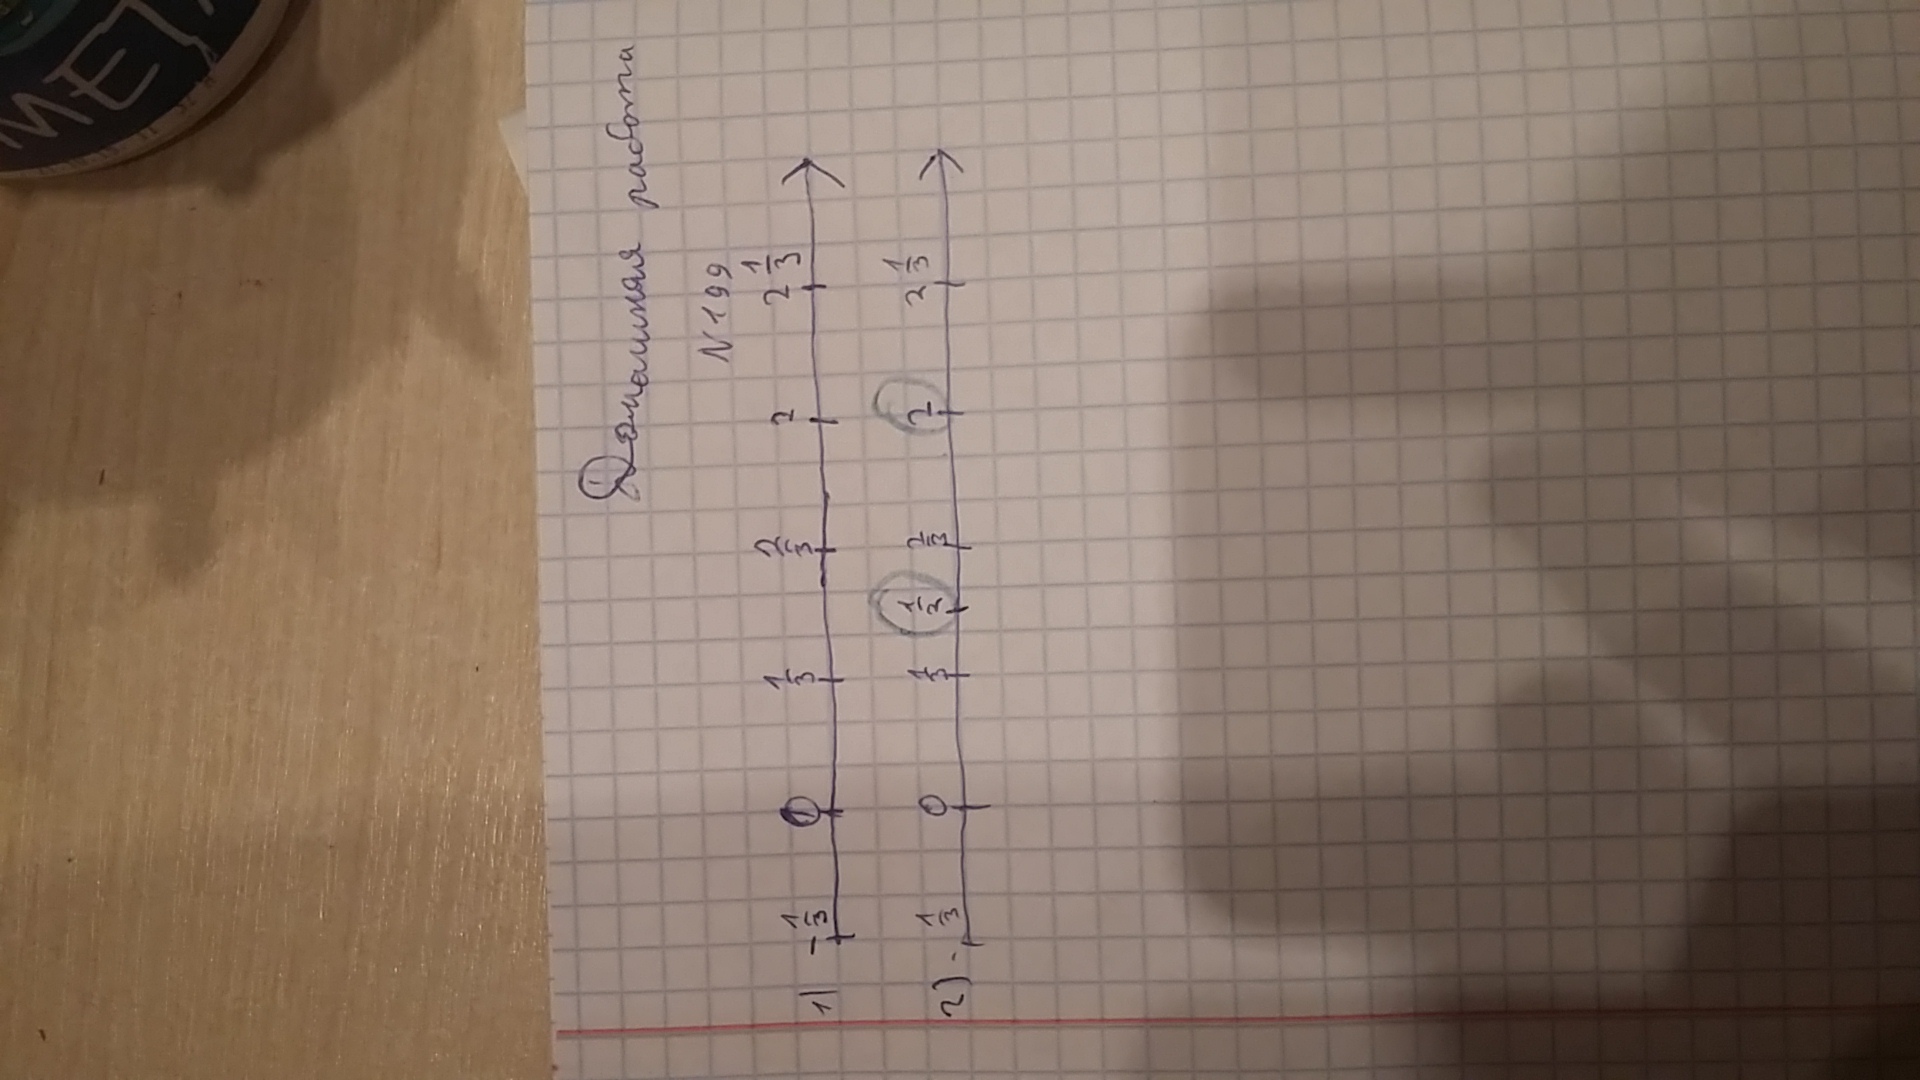 МЕТ
Домашняя работа
N199
1) -1/3 0 1/3 2/3 2 2 1/3
2) -1/3 0 1/3 1/2 2/3 2 2 1/3